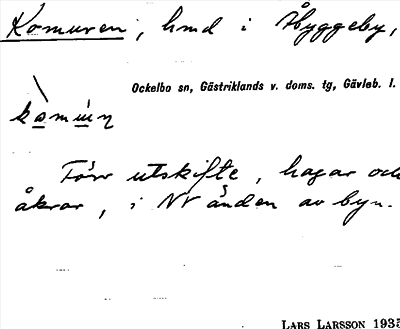 Komuren, hmd i Åbyggeby,
Ockelbo sn, Gästriklands v. doms. tg, Gävleb. l.
Förr utskifte, hagar och
åkrar, i NV änden av byn.
LARS LARSSON 1935